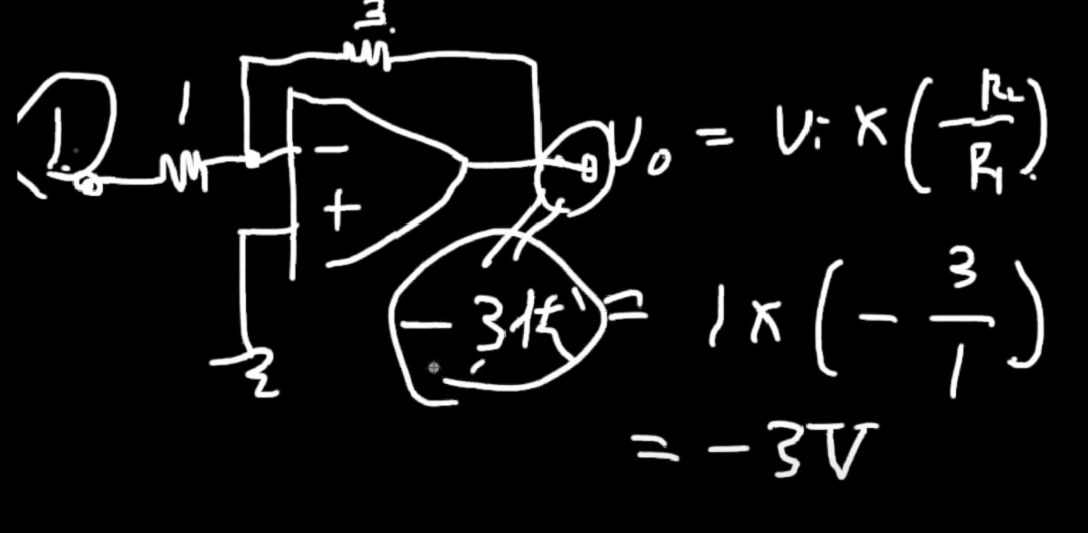 3
1
1
−
+
V₀ = Vi × (R₂/R₁)
−3倍
= 1 × (− 3/1)
= −3V